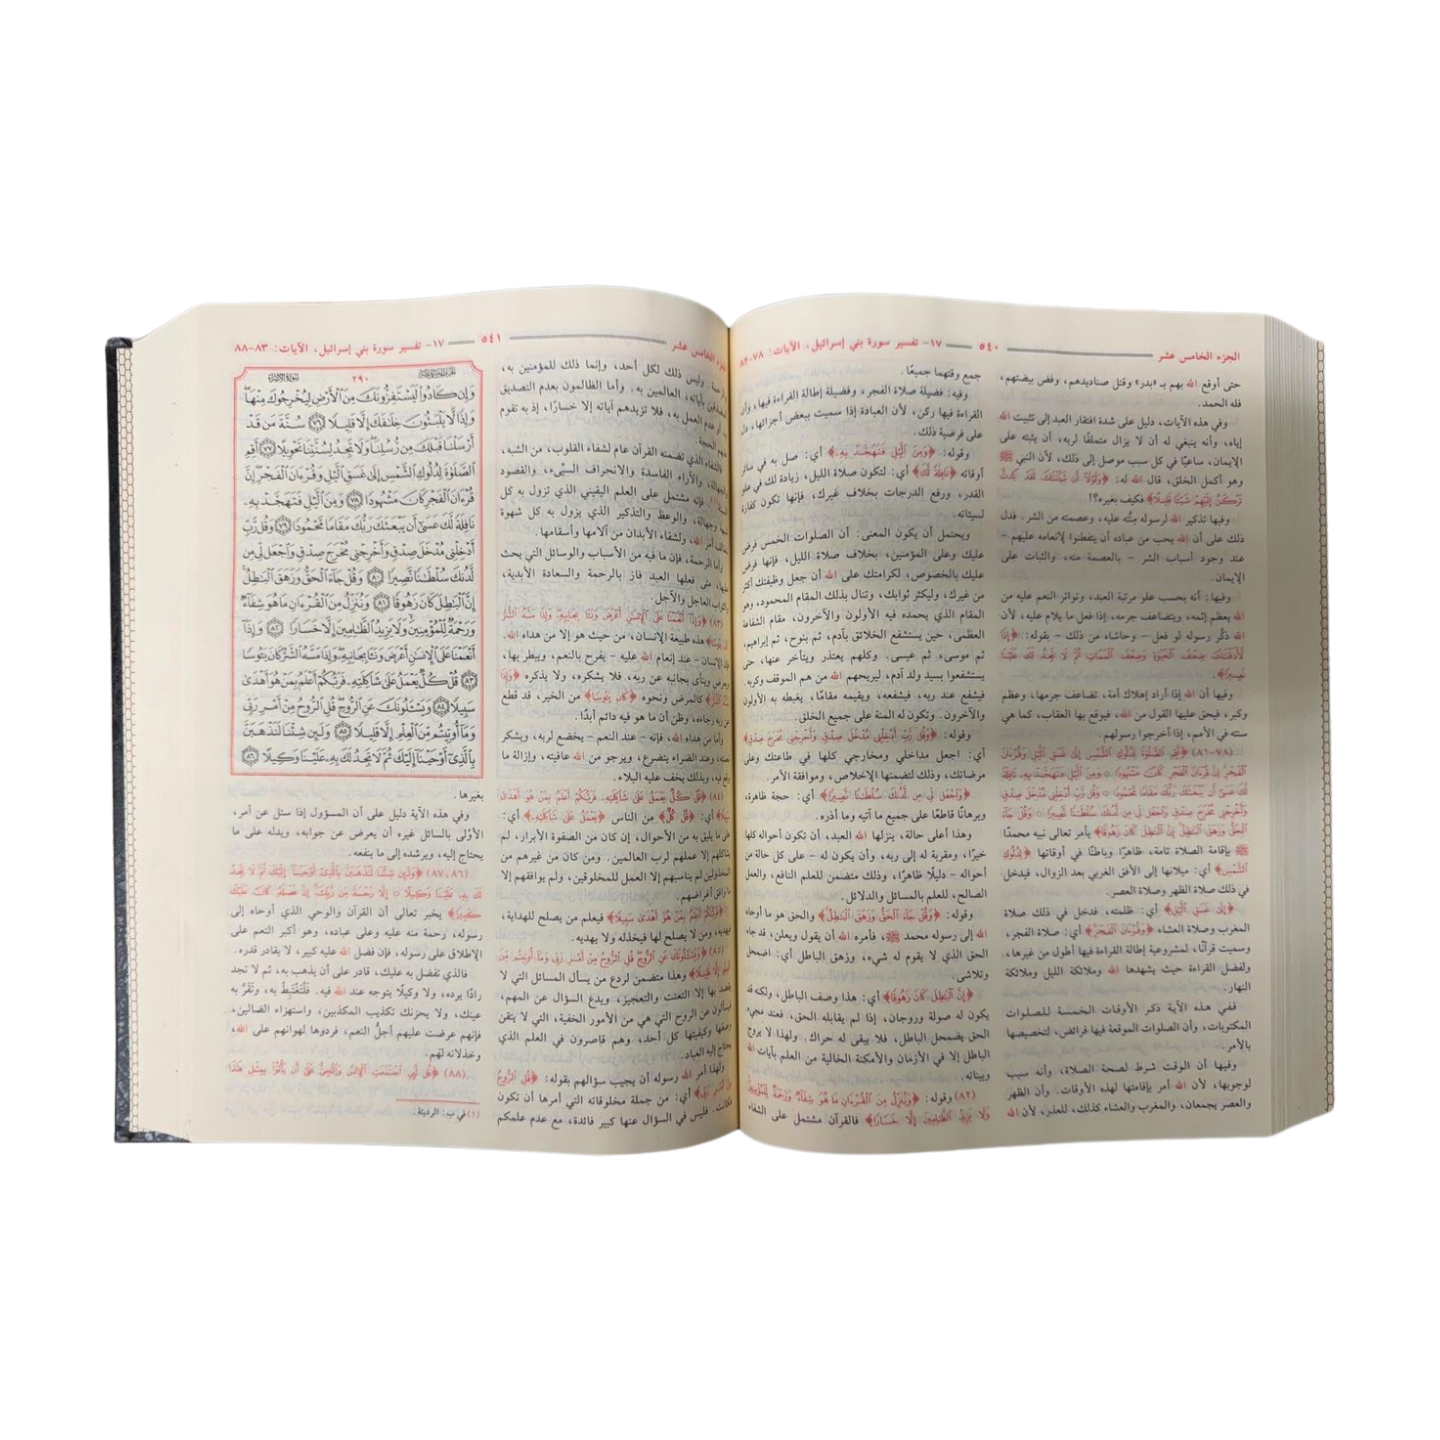 الجزء الخامس عشر ٥٤٠ ١٧- تفسير سورة بني إسرائيل، الآيات: ٧٨-٨٢
حتى أوقع الله بهم بـ «بدر» وقتل صناديدهم، وفض بيضتهم،
فله الحمد.
وفي هذه الآيات، دليل على شدة افتقار العبد إلى تثبيت الله
إياه، وأنه ينبغي له أن لا يزال متملقًا لربه، أن يثبته على
الإيمان، ساعيًا في كل سبب موصل إلى ذلك، لأن النبي ﷺ
وهو أكمل الخلق، قال الله له: ﴿وَلَوْلَا أَن ثَبَّتْنَاكَ لَقَدْ كِدتَّ
تَرْكَنُ إِلَيْهِمْ شَيْئًا قَلِيلًا﴾ فكيف بغيره؟!
وفيها تذكير الله لرسوله منَّته عليه، وعصمته من الشر. فدل
ذلك على أن الله يحب من عباده أن يتفطنوا لإنعامه عليهم -
عند وجود أسباب الشر - بالعصمة منه، والثبات على
الإيمان.
وفيها: أنه بحسب علو مرتبة العبد، وتواتر النعم عليه من
الله يعظم إثمه، ويتضاعف جرمه، إذا فعل ما يلام عليه، لأن
الله ذكَّر رسوله لو فعل - وحاشاه من ذلك - بقوله: ﴿إِذًا
لَأَذَقْنَاكَ ضِعْفَ الْحَيَاةِ وَضِعْفَ الْمَمَاتِ ثُمَّ لَا تَجِدُ لَكَ عَلَيْنَا
نَصِيرًا﴾.
وفيها أن الله إذا أراد إهلاك أمة، تضاعف جرمها، وعظم
وكبر، فيحق عليها القول من الله، فيوقع بها العقاب، كما هي
سنته في الأمم، إذا أخرجوا رسولهم.
(٧٨-٨١) ﴿أَقِمِ الصَّلَاةَ لِدُلُوكِ الشَّمْسِ إِلَىٰ غَسَقِ اللَّيْلِ وَقُرْآنَ
الْفَجْرِ إِنَّ قُرْآنَ الْفَجْرِ كَانَ مَشْهُودًا ○ وَمِنَ اللَّيْلِ فَتَهَجَّدْ بِهِ نَافِلَةً
لَّكَ عَسَىٰ أَن يَبْعَثَكَ رَبُّكَ مَقَامًا مَّحْمُودًا ○ وَقُل رَّبِّ أَدْخِلْنِي مُدْخَلَ صِدْقٍ
وَأَخْرِجْنِي مُخْرَجَ صِدْقٍ وَاجْعَل لِّي مِن لَّدُنكَ سُلْطَانًا نَّصِيرًا ○ وَقُلْ جَاءَ
الْحَقُّ وَزَهَقَ الْبَاطِلُ إِنَّ الْبَاطِلَ كَانَ زَهُوقًا﴾ يأمر تعالى نبيه محمدًا
ﷺ بإقامة الصلاة تامة، ظاهرًا وباطنًا في أوقاتها ﴿لِدُلُوكِ
الشَّمْسِ﴾ أي: ميلانها إلى الأفق الغربي بعد الزوال، فيدخل
في ذلك صلاة الظهر وصلاة العصر.
﴿إِلَىٰ غَسَقِ اللَّيْلِ﴾ أي: ظلمته، فدخل في ذلك صلاة
المغرب وصلاة العشاء ﴿وَقُرْآنَ الْفَجْرِ﴾ أي: صلاة الفجر،
وسميت قرآنًا، لمشروعية إطالة القراءة فيها أطول من غيرها،
ولفضل القراءة حيث يشهدها الله وملائكة الليل وملائكة
النهار.
ففي هذه الآية ذكر الأوقات الخمسة للصلوات
المكتوبات، وأن الصلوات الموقعة فيها فرائض، لتخصيصها
بالأمر.
وفيها أن الوقت شرط لصحة الصلاة، وأنه سبب
لوجوبها، لأن الله أمر بإقامتها لهذه الأوقات. وأن الظهر
والعصر يجمعان، والمغرب والعشاء كذلك، للعذر، لأن الله
جمع وقتهما جميعًا.
وفيه: فضيلة صلاة الفجر، وفضيلة إطالة القراءة فيها، وأن
القراءة فيها ركن، لأن العبادة إذا سميت ببعض أجزائها، دل
على فرضية ذلك.
وقوله: ﴿وَمِنَ اللَّيْلِ فَتَهَجَّدْ بِهِ﴾ أي: صل به في سائر
أوقاته ﴿نَافِلَةً لَّكَ﴾ أي: لتكون صلاة الليل، زيادة لك في علو
القدر، ورفع الدرجات بخلاف غيرك، فإنها تكون كفارة
لسيئاته.
ويحتمل أن يكون المعنى: أن الصلوات الخمس فرض
عليك وعلى المؤمنين، بخلاف صلاة الليل، فإنها فرض
عليك بالخصوص، لكرامتك على الله أن جعل وظيفتك أكثر
من غيرك، وليكثر ثوابك، وتنال بذلك المقام المحمود، وهو
المقام الذي يحمده فيه الأولون والآخرون، مقام الشفاعة
العظمى، حين يستشفع الخلائق بآدم، ثم بنوح، ثم إبراهيم،
ثم موسى، ثم عيسى. وكلهم يعتذر ويتأخر عنها، حتى
يستشفعوا بسيد ولد آدم، ليرحمهم الله من هم الموقف وكربه.
فيشفع عند ربه، فيشفعه، ويقيمه مقامًا، يغبطه به الأولون
والآخرون. وتكون له المنة على جميع الخلق.
وقوله: ﴿وَقُل رَّبِّ أَدْخِلْنِي مُدْخَلَ صِدْقٍ وَأَخْرِجْنِي مُخْرَجَ صِدْقٍ﴾
أي: اجعل مداخلي ومخارجي كلها في طاعتك وعلى
مرضاتك، وذلك لتضمنها الإخلاص، وموافقة الأمر.
﴿وَاجْعَل لِّي مِن لَّدُنكَ سُلْطَانًا نَّصِيرًا﴾ أي: حجة ظاهرة،
وبرهانًا قاطعًا على جميع ما آتيه وما أذره.
وهذا أعلى حالة، ينزلها الله العبد، أن تكون أحواله كلها
خيرًا، ومقربة له إلى ربه، وأن يكون له - على كل حالة من
أحواله - دليلًا ظاهرًا، وذلك متضمن للعلم النافع، والعمل
الصالح، للعلم بالمسائل والدلائل.
وقوله: ﴿وَقُلْ جَاءَ الْحَقُّ وَزَهَقَ الْبَاطِلُ﴾ والحق هو ما أوحاه
الله إلى رسوله محمد ﷺ، فأمره الله أن يقول ويعلن، قد جاء
الحق الذي لا يقوم له شيء، وزهق الباطل أي: اضمحل
وتلاشى.
﴿إِنَّ الْبَاطِلَ كَانَ زَهُوقًا﴾ أي: هذا وصف الباطل، ولكنه قد
يكون له صولة وروجان، إذا لم يقابله الحق، فعند مجيء
الحق يضمحل الباطل، فلا يبقى له حراك. ولهذا لا يروج
الباطل إلا في الأزمان والأمكنة الخالية من العلم بآيات الله
وبيناته.
(٨٢) وقوله: ﴿وَنُنَزِّلُ مِنَ الْقُرْآنِ مَا هُوَ شِفَاءٌ وَرَحْمَةٌ لِّلْمُؤْمِنِينَ
وَلَا يَزِيدُ الظَّالِمِينَ إِلَّا خَسَارًا﴾ فالقرآن مشتمل على الشفاء
الجزء الخامس عشر ٥٤١ ١٧- تفسير سورة بني إسرائيل، الآيات: ٨٣-٨٨
والرحمة. وليس ذلك لكل أحد، وإنما ذلك للمؤمنين به،
المصدقين بآياته، العالمين به. وأما الظالمون بعدم التصديق
به، أو عدم العمل به، فلا تزيدهم آياته إلا خسارًا، إذ به تقوم
عليهم الحجة.
فالشفاء الذي تضمنه القرآن عام لشفاء القلوب، من الشبه،
والجهالة، والآراء الفاسدة والانحراف السيِّىء، والقصود
فإنه مشتمل على العلم اليقيني الذي تزول به كل
شبهة وجهالة، والوعظ والتذكير الذي يزول به كل شهوة
تخالف أمر الله، ولشفاء الأبدان من آلامها وأسقامها.
وأما الرحمة، فإن ما فيه من الأسباب والوسائل التي يحث
عليها، متى فعلها العبد فاز بالرحمة والسعادة الأبدية،
والثواب العاجل والآجل.
(٨٣) ﴿وَإِذَا أَنْعَمْنَا عَلَى الْإِنسَانِ أَعْرَضَ وَنَأَىٰ بِجَانِبِهِ وَإِذَا مَسَّهُ الشَّرُّ
كَانَ يَئُوسًا﴾ هذه طبيعة الإنسان، من حيث هو إلا من هداه الله.
فإن الإنسان - عند إنعام الله عليه - يفرح بالنعم، ويبطر بها،
ويعرض وينأى بجانبه عن ربه، فلا يشكره، ولا يذكره ﴿وَإِذَا
مَسَّهُ الشَّرُّ﴾ كالمرض ونحوه ﴿كَانَ يَئُوسًا﴾ من الخير، قد قطع
عن ربه رجاءه، وظن أن ما هو فيه دائم أبدًا.
وأما من هداه الله، فإنه - عند النعم - يخضع لربه، ويشكر
نعمته، وعند الضراء يتضرع، ويرجو من الله عافيته، وإزالة ما
وقع فيه، وبذلك يخف عليه البلاء.
(٨٤) ﴿قُلْ كُلٌّ يَعْمَلُ عَلَىٰ شَاكِلَتِهِ فَرَبُّكُمْ أَعْلَمُ بِمَنْ هُوَ أَهْدَىٰ
سَبِيلًا﴾ أي: ﴿قُلْ كُلٌّ﴾ من الناس ﴿يَعْمَلُ عَلَىٰ شَاكِلَتِهِ﴾ أي:
على ما يليق به من الأحوال، إن كان من الصفوة الأبرار، لم
يشاكلهم إلا عملهم لرب العالمين. ومن كان من غيرهم من
المخذولين لم يناسبهم إلا العمل للمخلوقين، ولم يوافقهم إلا
ما وافق أغراضهم.
﴿فَرَبُّكُمْ أَعْلَمُ بِمَنْ هُوَ أَهْدَىٰ سَبِيلًا﴾ فيعلم من يصلح للهداية،
فيهديه، ومن لا يصلح لها فيخذله ولا يهديه.
(٨٥) ﴿وَيَسْأَلُونَكَ عَنِ الرُّوحِ قُلِ الرُّوحُ مِنْ أَمْرِ رَبِّي وَمَا أُوتِيتُم مِّنَ
الْعِلْمِ إِلَّا قَلِيلًا﴾ وهذا متضمن لردع من يسأل المسائل التي لا
يقصد بها إلا التعنت والتعجيز، ويدع السؤال عن المهم،
فيسألون عن الروح التي هي من الأمور الخفية، التي لا يتقن
وصفها وكيفيتها كل أحد، وهم قاصرون في العلم الذي
يحتاج إليه العباد.
ولهذا أمر الله رسوله أن يجيب سؤالهم بقوله: ﴿قُلِ الرُّوحُ
مِنْ أَمْرِ رَبِّي﴾ أي: من جملة مخلوقاته التي أمرها أن تكون
فكانت. فليس في السؤال عنها كبير فائدة، مع عدم علمكم
سورة الإسراء ٢٩٠ الجزء الخامس عشر
وَإِن كَادُوا لَيَسْتَفِزُّونَكَ مِنَ الْأَرْضِ لِيُخْرِجُوكَ مِنْهَا
وَإِذًا لَّا يَلْبَثُونَ خِلَافَكَ إِلَّا قَلِيلًا ٧٦ سُنَّةَ مَن قَدْ
أَرْسَلْنَا قَبْلَكَ مِن رُّسُلِنَا وَلَا تَجِدُ لِسُنَّتِنَا تَحْوِيلًا ٧٧ أَقِمِ
الصَّلَوٰةَ لِدُلُوكِ الشَّمْسِ إِلَىٰ غَسَقِ الَّيْلِ وَقُرْءَانَ الْفَجْرِ إِنَّ
قُرْءَانَ الْفَجْرِ كَانَ مَشْهُودًا ٧٨ وَمِنَ الَّيْلِ فَتَهَجَّدْ بِهِ
نَافِلَةً لَّكَ عَسَىٰ أَن يَبْعَثَكَ رَبُّكَ مَقَامًا مَّحْمُودًا ٧٩ وَقُل رَّبِّ
أَدْخِلْنِي مُدْخَلَ صِدْقٍ وَأَخْرِجْنِي مُخْرَجَ صِدْقٍ وَاجْعَل لِّي مِن
لَّدُنكَ سُلْطَانًا نَّصِيرًا ٨٠ وَقُلْ جَاءَ الْحَقُّ وَزَهَقَ الْبَاطِلُ
إِنَّ الْبَاطِلَ كَانَ زَهُوقًا ٨١ وَنُنَزِّلُ مِنَ الْقُرْءَانِ مَا هُوَ شِفَاءٌ
وَرَحْمَةٌ لِّلْمُؤْمِنِينَ وَلَا يَزِيدُ الظَّالِمِينَ إِلَّا خَسَارًا ٨٢ وَإِذَا
أَنْعَمْنَا عَلَى الْإِنسَانِ أَعْرَضَ وَنَأَىٰ بِجَانِبِهِ وَإِذَا مَسَّهُ الشَّرُّ كَانَ يَئُوسًا
٨٣ قُلْ كُلٌّ يَعْمَلُ عَلَىٰ شَاكِلَتِهِ فَرَبُّكُمْ أَعْلَمُ بِمَنْ هُوَ أَهْدَىٰ
سَبِيلًا ٨٤ وَيَسْأَلُونَكَ عَنِ الرُّوحِ قُلِ الرُّوحُ مِنْ أَمْرِ رَبِّي
وَمَا أُوتِيتُم مِّنَ الْعِلْمِ إِلَّا قَلِيلًا ٨٥ وَلَئِن شِئْنَا لَنَذْهَبَنَّ
بِالَّذِي أَوْحَيْنَا إِلَيْكَ ثُمَّ لَا تَجِدُ لَكَ بِهِ عَلَيْنَا وَكِيلًا ٨٦
بغيرها.
وفي هذه الآية دليل على أن المسؤول إذا سئل عن أمر،
الأوْلى بالسائل غيره أن يعرض عن جوابه، ويدله على ما
يحتاج إليه، ويرشده إلى ما ينفعه.
(٨٦، ٨٧) ﴿وَلَئِن شِئْنَا لَنَذْهَبَنَّ بِالَّذِي أَوْحَيْنَا إِلَيْكَ ثُمَّ لَا تَجِدُ
لَكَ بِهِ عَلَيْنَا وَكِيلًا ○ إِلَّا رَحْمَةً مِّن رَّبِّكَ إِنَّ فَضْلَهُ كَانَ عَلَيْكَ
كَبِيرًا﴾ يخبر تعالى أن القرآن والوحي الذي أوحاه إلى
رسوله، رحمة منه عليه وعلى عباده، وهو أكبر النعم على
الإطلاق على رسوله، فإن فضل الله عليه كبير، لا يقادر قدره.
فالذي تفضل به عليك، قادر على أن يذهب به، ثم لا تجد
رادًا يرده، ولا وكيلًا يتوجه عند الله فيه. فَلْتَغْتَبِطْ به، وتَقَرَّ به
عينك، ولا يحزنك تكذيب المكذبين، واستهزاء الضالين،
فإنهم عرضت عليهم أجلُّ النعم، فردوها لهوانهم على الله،
وخذلانه لهم.
(٨٨) ﴿قُل لَّئِنِ اجْتَمَعَتِ الْإِنسُ وَالْجِنُّ عَلَىٰ أَن يَأْتُوا بِمِثْلِ هَٰذَا
(١) في ب: الرديئة.